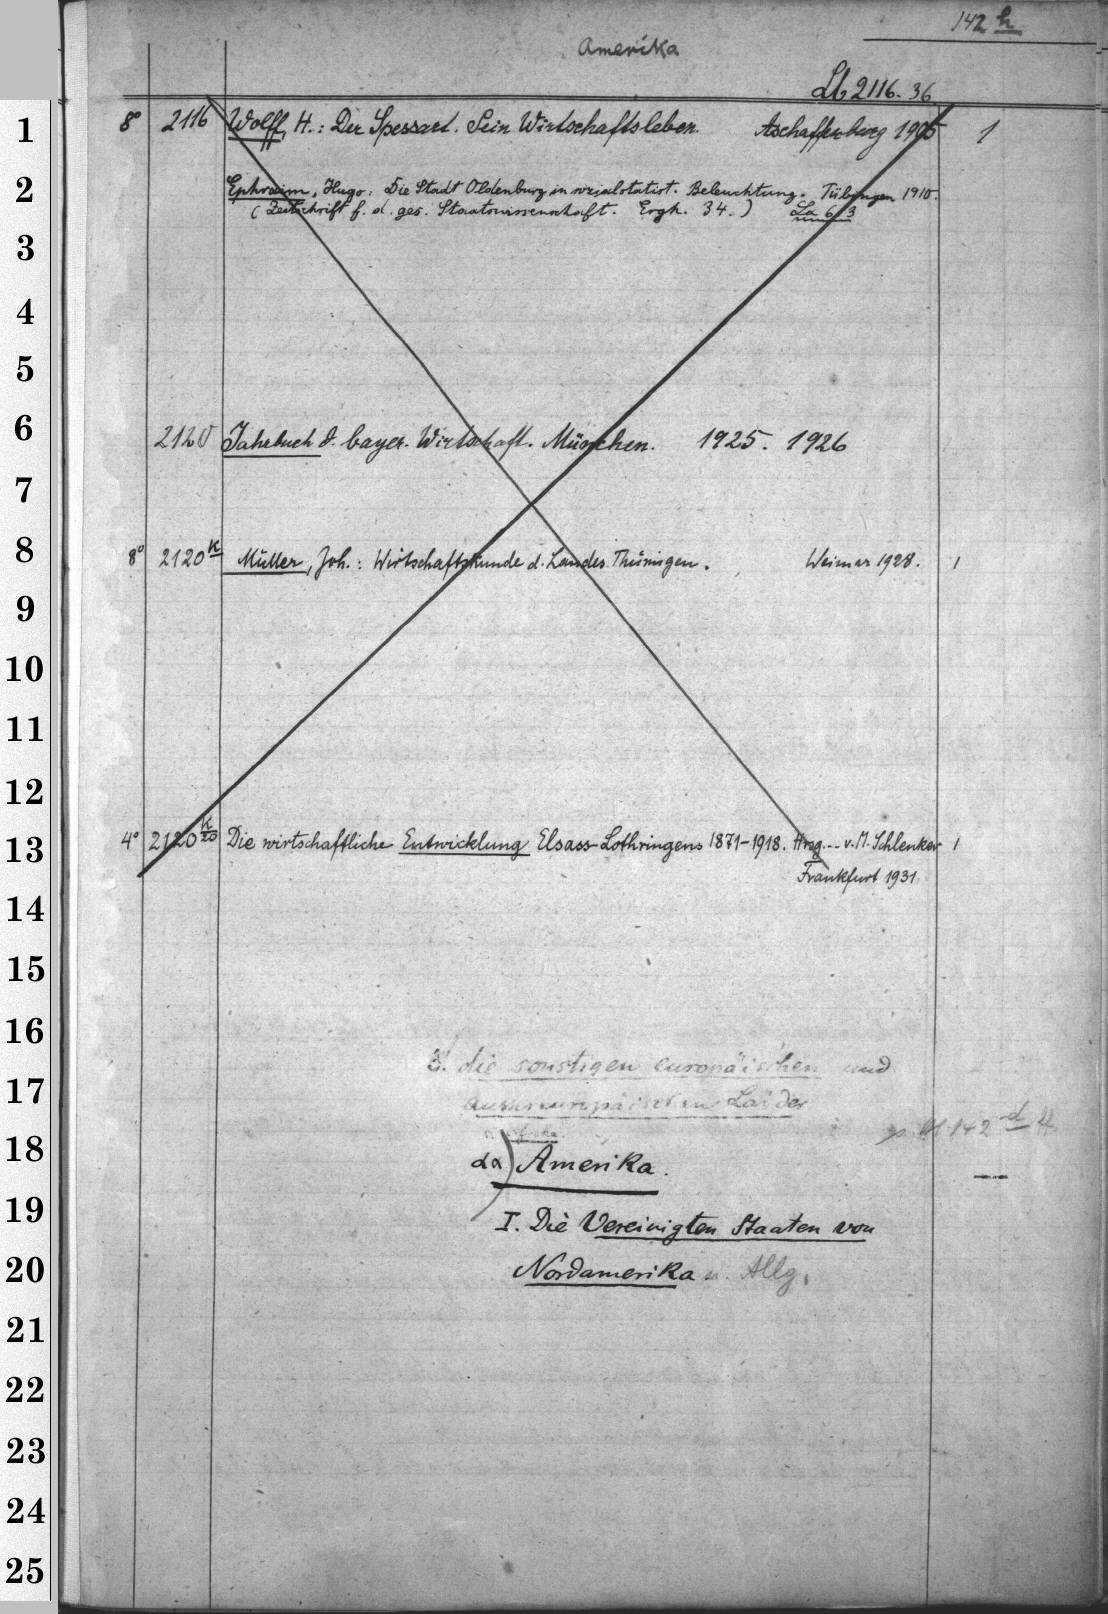 142 h
Amerika
Lb 2116. 36
1 8° 2116 Wolff, H.: Der Spessart. Sein Wirtschaftsleben. Aschaffenburg 1905 1
2 Ephraim, Hugo: Die Stadt Oldenburg in sozialstatist. Beleuchtung. Tübingen 1910.
(Zeitschrift f. d. ges. Staatswissenschaft. Ergh. 34.) La 6/3
3
4
5
6 2120 Jahrbuch d. bayer. Wirtschaft. München. 1925. 1926
7
8 8° 2120 k Müller, Joh.: Wirtschaftskunde d. Landes Thüringen. Weimar 1928. 1
9
10
11
12
13 4° 2120 k/20 Die wirtschaftliche Entwicklung Elsass-Lothringens 1871-1918. Hrsg. -- v. M. Schlenker 1
Frankfurt 1931
14
15
16
die sonstigen europäischen und
17 aussereuropäischen Länder
142 d ff
18 da) Amerika.
19 I. Die Vereinigten Staaten von
20 Nordamerika u. Allg.
21
22
23
24
25